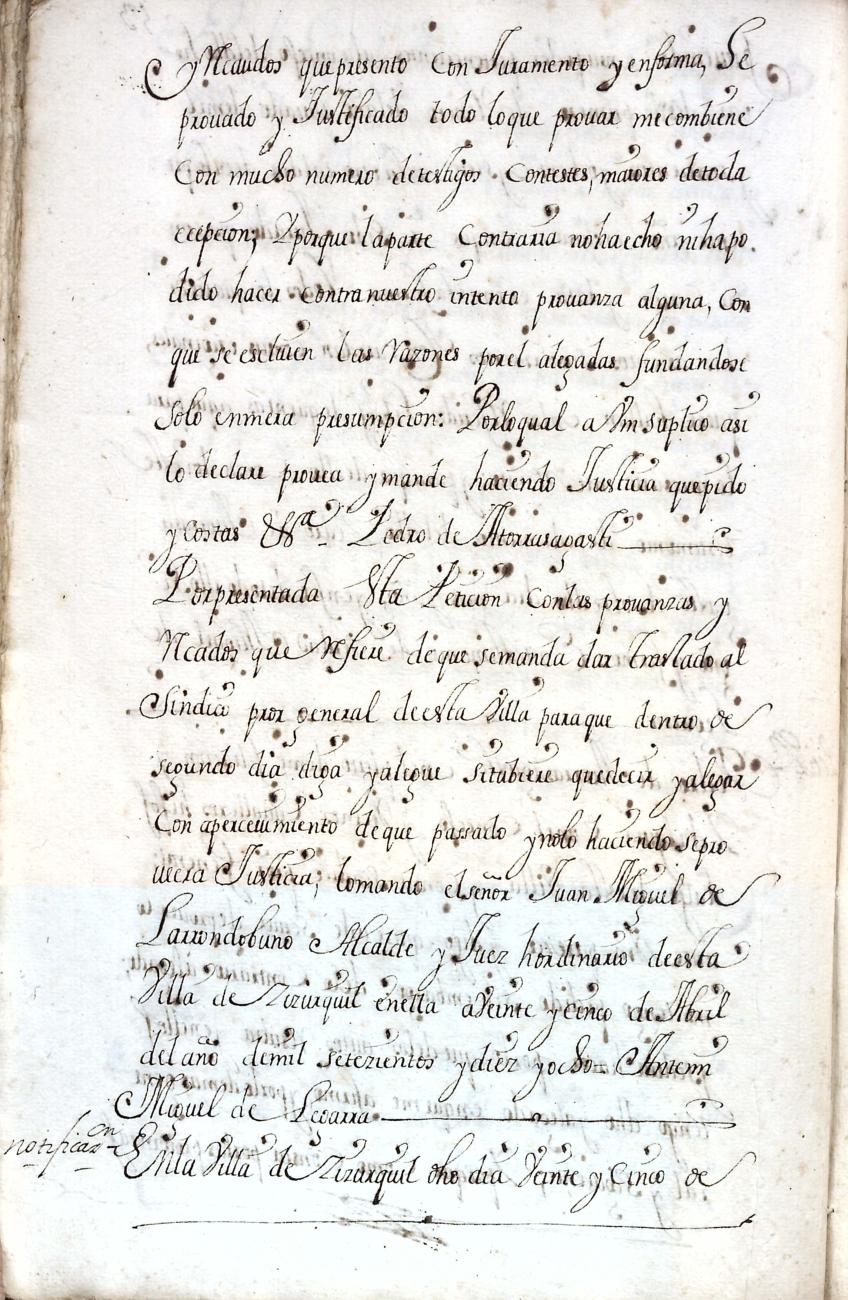 y Rcaudos que presento Con Juramento y enforma, Se
prouado y Justificado todo loque prouar mecombiene
Con mucho numero detestigos Contestes, maiores detoda
ecepcion; Yporque laparte Contraria nohaecho nihapo
dido hacer contranuestro intento prouanza alguna, Con
que se escluien las Razones porel alegadas fundandose
Solo enmera presumpcion: Porloqual a Vm suplico asi
lo declare prouea ymande haciendo Justicia quepido
y costas &ª Pedro de Atorrasagasti
Porpresentada esta Peticion Conlas prouanzas y
Rcados que Refiere deque semanda dar traslado al
Sindico pror general deesta Villa paraque dentro de
segundo dia diga yalegue situbiere quedecir yalegar
Con apercevimiento deque passado ynolo haciendo sepro
ueera Justicia; lomando elseñor Juan Miguel de
Larrondobuno Alcalde y Juez hordinario deesta
Villa de Zizurquil enella aVeinte ycinco de Abril
del año demil setezientos ydiez yocho= Antemi
Miguel de Legarra
notificaon Enla Villa de Zizurquil dho dia Veinte y Cinco de